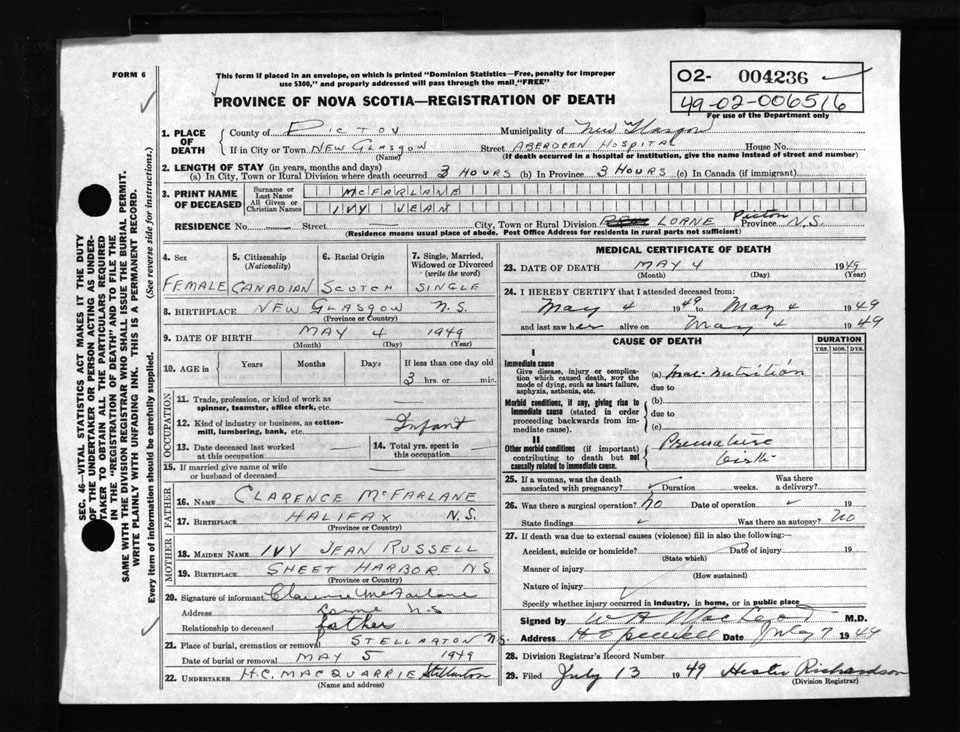 FORM 6
This form if placed in an envelope, on which is printed "Dominion Statistics—Free, penalty for improper
use $300," and properly addressed will pass through the mail "FREE"
PROVINCE OF NOVA SCOTIA—REGISTRATION OF DEATH
O2- 004236
49-02-006516
For use of the Department only
SEC. 46—VITAL STATISTICS ACT MAKES IT THE DUTY
OF THE UNDERTAKER OR PERSON ACTING AS UNDER-
TAKER TO OBTAIN ALL THE PARTICULARS REQUIRED
IN THE "REGISTRATION OF DEATH" AND TO FILE THE
SAME WITH THE DIVISION REGISTRAR WHO SHALL ISSUE THE BURIAL PERMIT.
WRITE PLAINLY WITH UNFADING INK. THIS IS A PERMANENT RECORD.
Every item of information should be carefully supplied. (See reverse side for instructions.)
1. PLACE OF DEATH
County of PICTOU Municipality of New Glasgow
If in City or Town NEW GLASGOW Street ABERDEEN HOSPITAL House No.
(Name) (If death occurred in a hospital or institution, give the name instead of street and number)
2. LENGTH OF STAY (in years, months and days)
(a) In City, Town or Rural Division where death occurred 3 HOURS (b) In Province 3 HOURS (c) In Canada (if immigrant)
3. PRINT NAME OF DECEASED
Surname or Last Name MCFARLANE
All Given or Christian Names IVY JEAN
RESIDENCE No. Street City, Town or Rural Division LORNE Pictou Province N.S.
(Residence means usual place of abode. Post Office Address for residents in rural parts not sufficient)
4. Sex
FEMALE
5. Citizenship (Nationality)
CANADIAN
6. Racial Origin
SCOTCH
7. Single, Married, Widowed or Divorced (write the word)
SINGLE
8. BIRTHPLACE NEW GLASGOW N.S.
(Province or Country)
9. DATE OF BIRTH MAY 4 1949
(Month) (Day) (Year)
10. AGE in Years Months Days If less than one day old
3 hrs. or min.
OCCUPATION
11. Trade, profession, or kind of work as
spinner, teamster, office clerk, etc.
12. Kind of industry or business, as cotton-
mill, lumbering, bank, etc. Infant
13. Date deceased last worked
at this occupation
14. Total yrs. spent in
this occupation
15. If married give name of wife
or husband of deceased
FATHER
16. NAME CLARENCE MCFARLANE
17. BIRTHPLACE HALIFAX N.S.
(Province or Country)
MOTHER
18. MAIDEN NAME IVY JEAN RUSSELL
19. BIRTHPLACE SHEET HARBOR NS
(Province or Country)
20. Signature of informant Clarence McFarlane
Address Lorne NS
Relationship to deceased father
21. Place of burial, cremation or removal STELLARTON N.S.
Date of burial or removal MAY 5 1949
22. UNDERTAKER H.C. MACQUARRIE Stellarton
(Name and address)
MEDICAL CERTIFICATE OF DEATH
23. DATE OF DEATH MAY 4 1949
(Month) (Day) (Year)
24. I HEREBY CERTIFY that I attended deceased from:
May 4 1949 to May 4 1949
and last saw her alive on May 4 1949
CAUSE OF DEATH
DURATION
YRS. MOS. DYS.
I
Immediate cause
Give disease, injury or complica-
tion which caused death, NOT the
mode of dying, such as heart failure,
asphyxia, asthenia, etc.
(a) Mal-nutrition
due to
Morbid conditions, if any, giving rise to
immediate cause (stated in order
proceeding backwards from im-
mediate cause).
(b)
due to
(c)
II
Other morbid conditions (if important)
contributing to death but not
causally related to immediate cause.
Premature
birth
25. If a woman, was the death
associated with pregnancy? Duration weeks. Was there
a delivery?
26. Was there a surgical operation? No Date of operation 19
State findings Was there an autopsy? No
27. If death was due to external causes (violence) fill in also the following:—
Accident, suicide or homicide? Date of injury 19
(State which)
Manner of injury
(How sustained)
Nature of injury
Specify whether injury occurred in industry, in home, or in public place
Signed by M.D.
Address Hopewell Date July 7 1949
28. Division Registrar's Record Number
29. Filed July 13 1949 Hester Richardson
(Division Registrar)